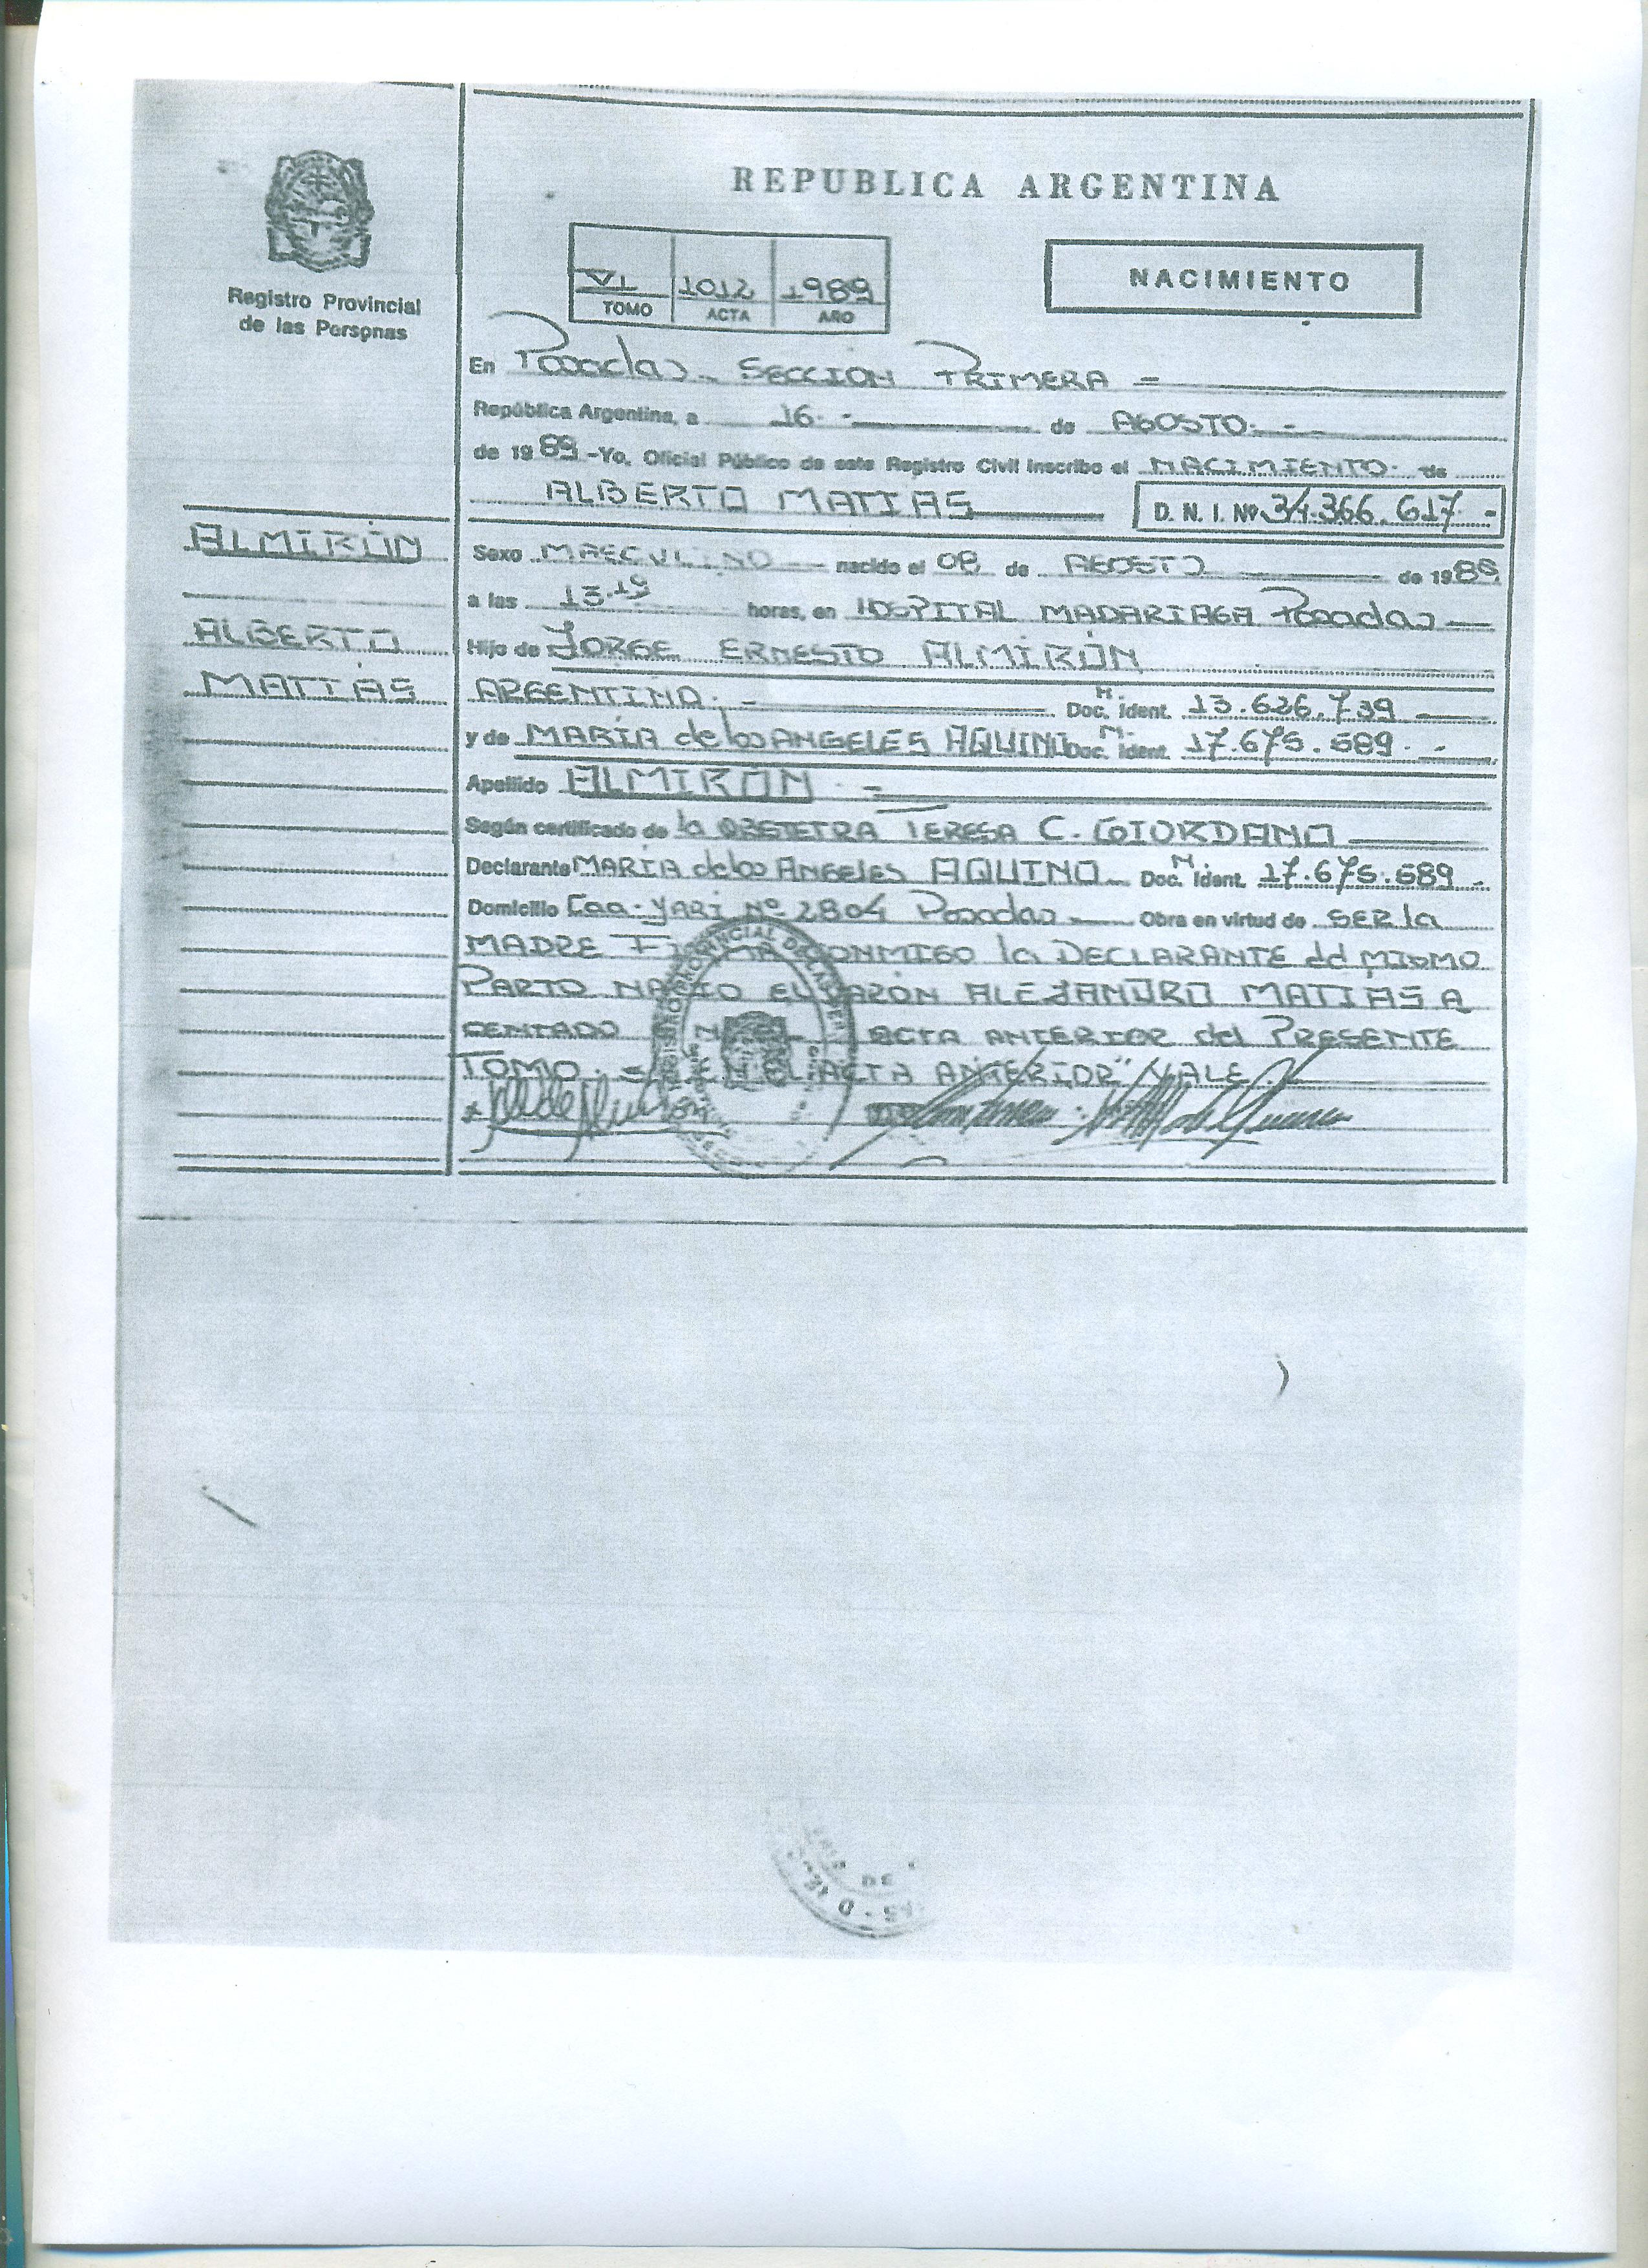 REPUBLICA ARGENTINA
Registro Provincial
de las Personas
VI 1012 1989
TOMO ACTA AÑO
NACIMIENTO
En Posadas SECCION PRIMERA
República Argentina, a 16 de AGOSTO
de 1989 - Yo, Oficial Público de este Registro Civil inscribo el NACIMIENTO de
ALBERTO MATIAS D. N. I. Nº 34.366.617
ALMIRÓN
ALBERTO
MATÍAS
Sexo MASCULINO nacido el 08 de AGOSTO de 1989
a las 13.15 horas, en HOSPITAL MADARIAGA Posadas
Hijo de JORGE ERNESTO ALMIRÓN
ARGENTINO. Doc. M. Ident. 13.626.739
y de MARÍA de los ANGELES AQUINO Doc. M. Ident. 17.675.589
Apellido ALMIRÓN
Según certificado de la OBSTETRA TERESA C. GIORDANO
Declarante MARÍA de los ANGELES AQUINO Doc. M. Ident. 17.675.589
Domicilio Caa-YARI Nº 2804 Posadas Obra en virtud de SER la
MADRE CONMIGO la DECLARANTE del MISMO
PARTO EL VARÓN ALEJANDRO MATIAS A
SENTADO ACTA ANTERIOR del PRESENTE
TOMO. = ACTA ANTERIOR" VALE